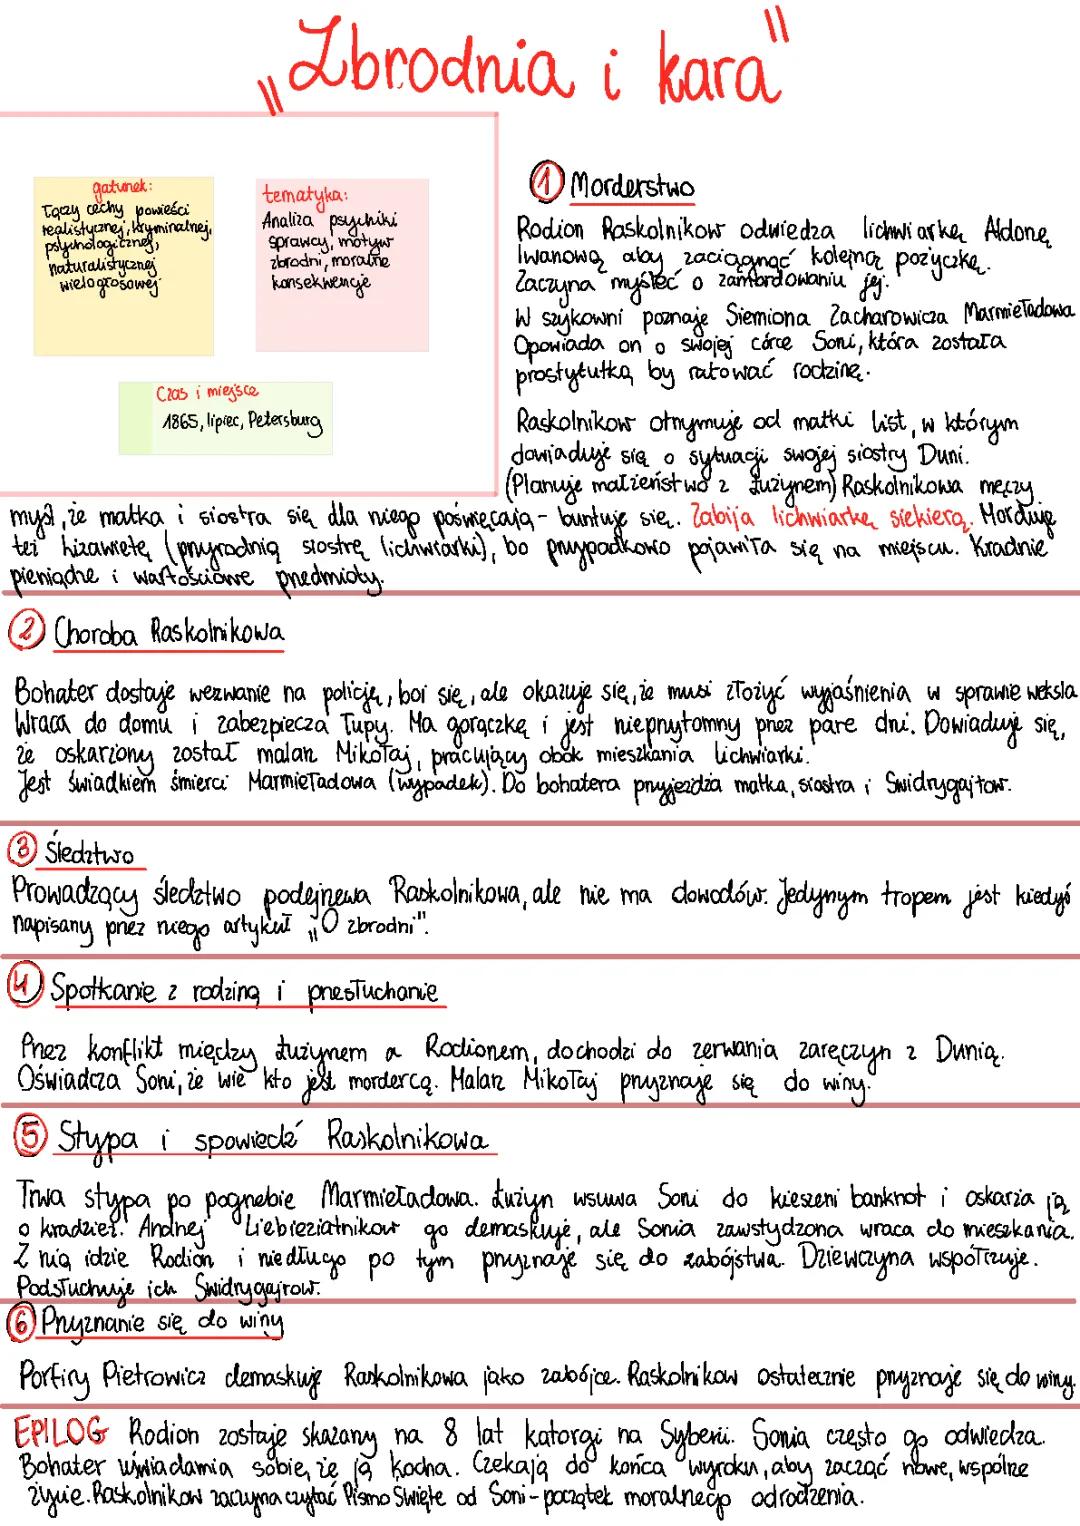 „Zbrodnia i kara"
gatunek:
Łączy cechy powieści
realistycznej, kryminalnej,
psychologicznej,
naturalistycznej
wielogłosowej
tematyka:
Analiza psychiki
sprawcy, motyw
zbrodni, moralne
konsekwencje
Czas i miejsce
1865, lipiec, Petersburg
① Morderstwo
Rodion Raskolnikow odwiedza lichwiarkę Aldonę
Iwanową aby zaciągnąć kolejną pożyczkę.
Zaczyna myśleć o zamordowaniu jej.
W szykowni poznaje Siemiona Zacharowicza Marmieładowa
Opowiada on o swojej córce Soni, która została
prostytutką by ratować rodzinę.
Raskolnikow otrzymuje od matki list, w którym
dowiaduje się o sytuacji swojej siostry Duni.
(Planuje małżeństwo z Łużynem) Raskolnikowa męczy
myśl, że matka i siostra się dla niego poświęcają - buntuje się. Zabija lichwiarkę siekierą. Morduje
też Lizawietę (przyrodnią siostrę lichwiarki), bo przypadkowo pojawiła się na miejscu. Kradnie
pieniądze i wartościowe przedmioty.
② Choroba Raskolnikowa
Bohater dostaje wezwanie na policję, boi się, ale okazuje się, że musi złożyć wyjaśnienia w sprawie weksla
Wraca do domu i zabezpiecza łupy. Ma gorączkę i jest nieprzytomny przez parę dni. Dowiaduje się,
że oskarżony został malarz Mikołaj, pracujący obok mieszkania lichwiarki.
Jest świadkiem śmierci Marmieładowa (wypadek). Do bohatera przyjeżdża matka, siostra i Swidrygajłow.
③ Śledztwo
Prowadzący śledztwo podejrzewa Raskolnikowa, ale nie ma dowodów. Jedynym tropem jest kiedyś
napisany przez niego artykuł „O zbrodni".
④ Spotkanie z rodziną i przesłuchanie
Przez konflikt między Łużynem a Rodionem, dochodzi do zerwania zaręczyn z Dunią.
Oświadcza Soni, że wie kto jest mordercą. Malarz Mikołaj przyznaje się do winy.
⑤ Stypa i spowiedź Raskolnikowa
Trwa stypa po pogrzebie Marmieładowa. Łużyn wsuwa Soni do kieszeni banknot i oskarża ją
o kradzież. Andrzej Liebieziatnikow go demaskuje, ale Sonia zawstydzona wraca do mieszkania.
Z nią idzie Rodion i niedługo po tym przyznaje się do zabójstwa. Dziewczyna współczuje.
Podsłuchuje ich Swidrygajłow.
⑥ Przyznanie się do winy
Porfiry Pietrowicz demaskuje Raskolnikowa jako zabójcę. Raskolnikow ostatecznie przyznaje się do winy.
EPILOG Rodion zostaje skazany na 8 lat katorgi na Syberii. Sonia często go odwiedza.
Bohater uświadamia sobie, że ją kocha. Czekają do końca wyroku, aby zacząć nowe, wspólne
życie. Raskolnikow zaczyna czytać Pismo Święte od Soni - początek moralnego odrodzenia.